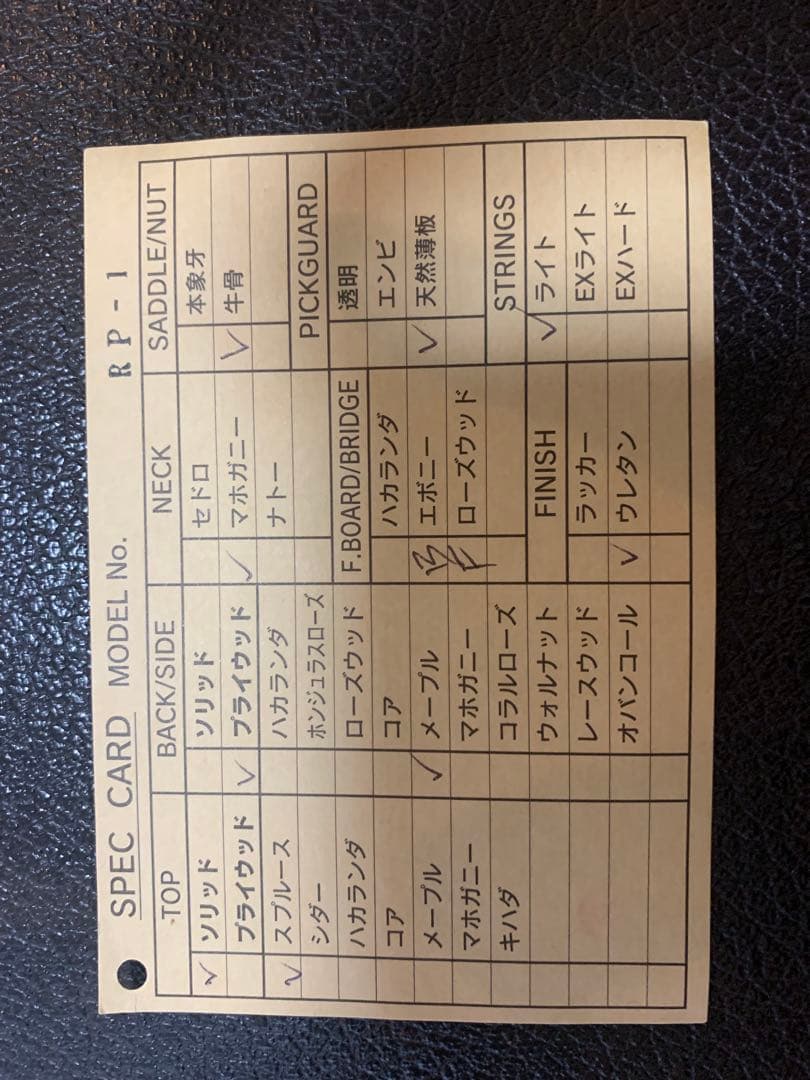 SPEC CARD MODEL No. RP-1
TOP
ソリッド
プライウッド
スプルース
シダー
ハカランダ
コア
メープル
マホガニー
キハダ
BACK/SIDE
ソリッド
プライウッド
ハカランダ
ホンジュラスローズ
ローズウッド
コア
メープル
マホガニー
コラルローズ
ウォルナット
レースウッド
オバンコール
NECK
セドロ
マホガニー
ナトー
F.BOARD/BRIDGE
ハカランダ
エボニー
ローズウッド
FINISH
ラッカー
ウレタン
SADDLE/NUT
本象牙
牛骨
PICKGUARD
透明
エンビ
天然薄板
STRINGS
ライト
EXライト
EXハード